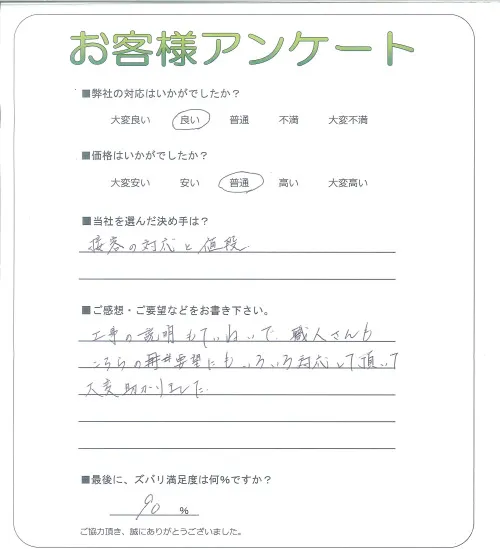 お客様アンケート
■弊社の対応はいかがでしたか？
大変良い 良い 普通 不満 大変不満
■価格はいかがでしたか？
大変安い 安い 普通 高い 大変高い
■当社を選んだ決め手は？
接客の対応と値段.
■ご感想・ご要望などをお書き下さい。
工事の説明もていねいで、職人さんも
こちらの要望にもいろいろ対応して頂いて
大変助かりました.
■最後に、ズバリ満足度は何%ですか？
90 %
ご協力頂き、誠にありがとうございました。